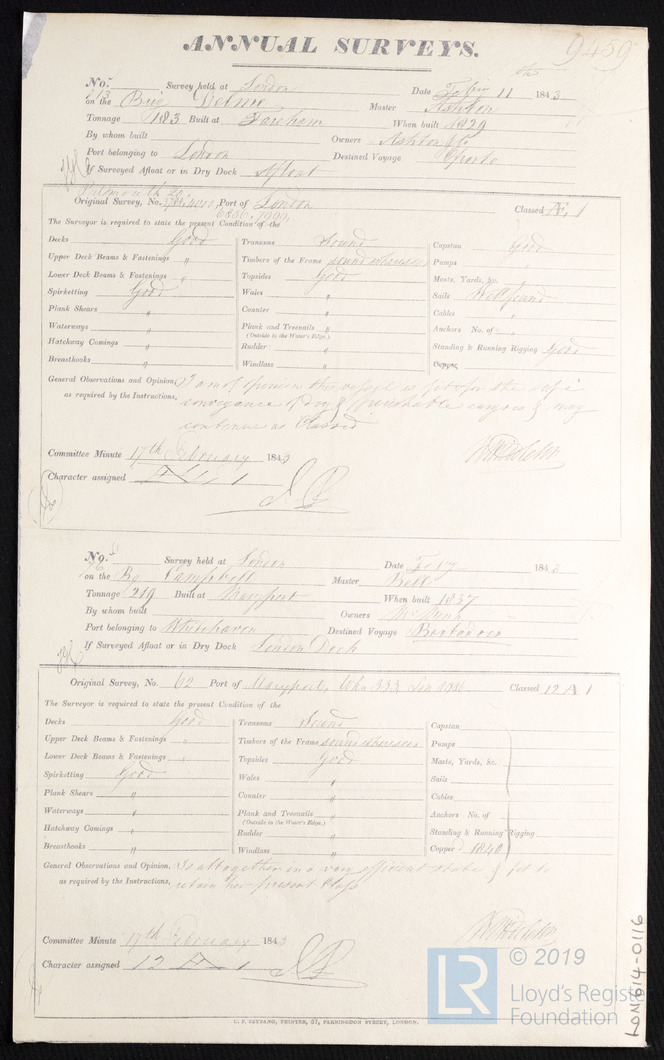 ANNUAL SURVEYS.
9459
No. 213 Survey held at London Date Feby 11th 1843
on the Brig Delmé Master Ashton
Tonnage 183 Built at Fareham When built 1829
By whom built Owners Ashton & Co
Port belonging to London Destined Voyage Oporto
If Surveyed Afloat or in Dry Dock Afloat
Original Survey, No. Port of London Classed Æ 1
The Surveyor is required to state the present Condition of the
Decks Good Transoms Sound Capstan Good
Upper Deck Beams & Fastenings " Timbers of the Frame sound where seen Pumps "
Lower Deck Beams & Fastenings " Topsides Good Masts, Yards, &c. "
Spirketting Good Wales " Sails Well found
Plank Shears " Counter " Cables "
Waterways " Plank and Treenails " Anchors No. of "
(Outside to the Water's Edge.)
Hatchway Comings " Rudder " Standing & Running Rigging Good
Breasthooks " Windlass " Copper
General Observations and Opinion, I am of opinion this vessel is fit for the safe
as required by the Instructions, conveyance of dry & perishable cargoes & may
continue as Classed
Committee Minute 17th February 1843
Character assigned Æ 1
No. Survey held at London Date Feby 1843
on the Bg Campbell Master Bell
Tonnage 219 Built at Maryport When built 1837
By whom built Owners
Port belonging to Whitehaven Destined Voyage Barbadoes
If Surveyed Afloat or in Dry Dock London Dock
Original Survey, No. 62 Port of Maryport, Wha 333 Lon Classed 12 A 1
The Surveyor is required to state the present Condition of the
Decks Good Transoms Sound Capstan
Upper Deck Beams & Fastenings " Timbers of the Frame sound where seen Pumps
Lower Deck Beams & Fastenings " Topsides Good Masts, Yards, &c.
Spirketting Good Wales " Sails
Plank Shears " Counter " Cables
Waterways " Plank and Treenails " Anchors No. of
(Outside to the Water's Edge.)
Hatchway Comings " Rudder " Standing & Running Rigging
Breasthooks " Windlass " Copper'd 1840
General Observations and Opinion, Is altogether in a very efficient state & fit to
as required by the Instructions, retain her present Class
Committee Minute 17th February 1843
Character assigned 12 A 1
C. F. SEYFANG, PRINTER, 57, FARRINGDON STREET, LONDON.
LON614-0116
LR
© 2019
Lloyd's Register
Foundation